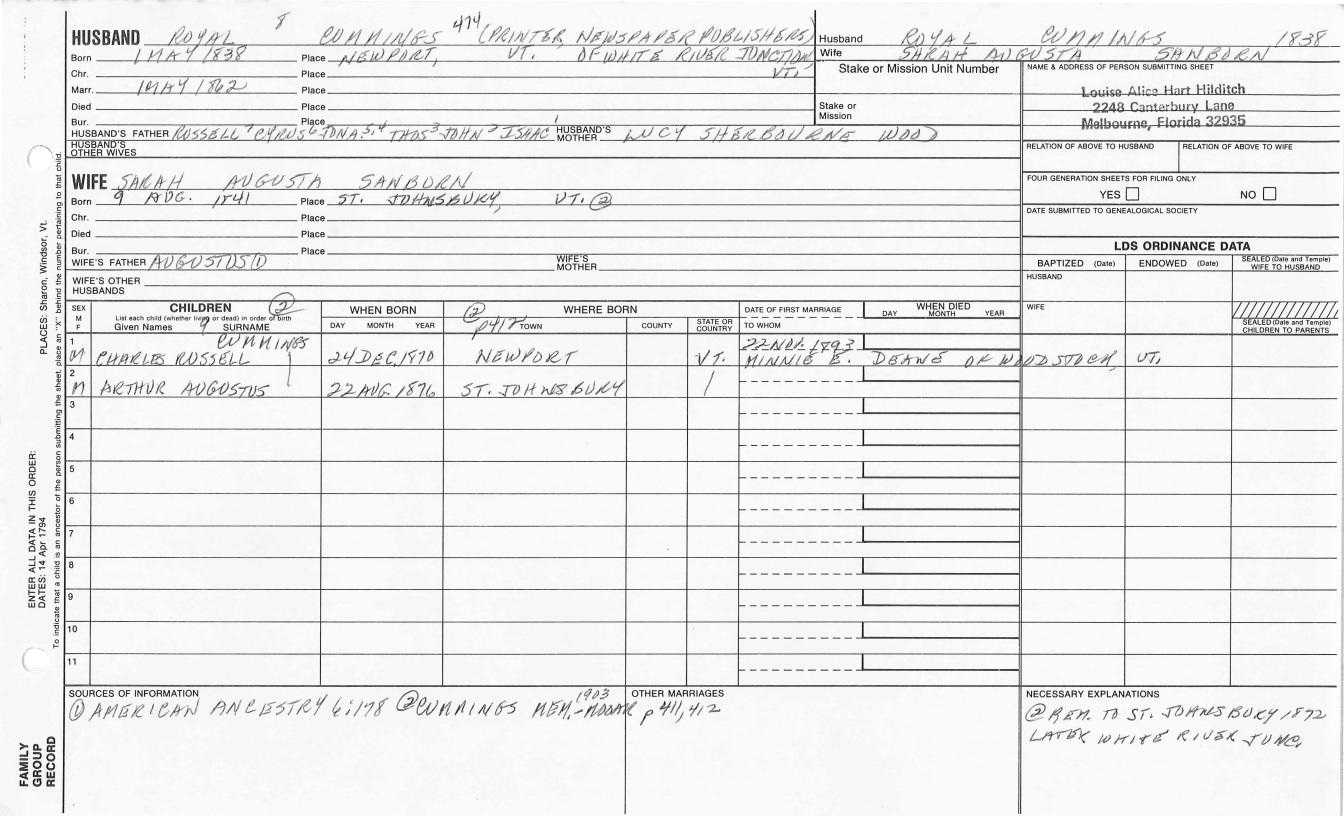 HUSBAND ROYAL 8 CUMMINGS 474 (PRINTER, NEWSPAPER PUBLISHERS)
Born 1 MAY 1838 Place NEWPORT, VT. OF WHITE RIVER JUNCTION, VT.
Chr. Place
Marr. 1 MAY 1862 Place
Died Place
Bur. Place
HUSBAND'S FATHER RUSSELL 7 CYRUS 6 JONA. 5,4 THOS 3 JOHN 2 ISAAC HUSBAND'S MOTHER LUCY SHERBOURNE WOOD
HUSBAND'S OTHER WIVES
WIFE SARAH AUGUSTA SANBORN
Born 9 AUG. 1841 Place ST. JOHNSBURY, VT. ②
Chr. Place
Died Place
Bur. Place
WIFE'S FATHER AUGUSTUS ① WIFE'S MOTHER
WIFE'S OTHER HUSBANDS
Husband ROYAL CUMMINGS 1838
Wife SARAH AUGUSTA SANBORN
Stake or Mission Unit Number
Stake or Mission
NAME & ADDRESS OF PERSON SUBMITTING SHEET
Louise Alice Hart Hilditch
2248 Canterbury Lane
Melbourne, Florida 32935
RELATION OF ABOVE TO HUSBAND RELATION OF ABOVE TO WIFE
FOUR GENERATION SHEETS FOR FILING ONLY
YES NO
DATE SUBMITTED TO GENEALOGICAL SOCIETY
LDS ORDINANCE DATA
BAPTIZED (Date) ENDOWED (Date) SEALED (Date and Temple) WIFE TO HUSBAND
HUSBAND
WIFE
SEALED (Date and Temple) CHILDREN TO PARENTS
SEX M F CHILDREN ② WHEN BORN ② WHERE BORN DATE OF FIRST MARRIAGE WHEN DIED
List each child (whether living or dead) in order of birth
Given Names 9 SURNAME DAY MONTH YEAR p412 TOWN COUNTY STATE OR COUNTRY TO WHOM DAY MONTH YEAR
1 CUMMINGS 22 NOV. 1893
M CHARLES RUSSELL 24 DEC, 1870 NEWPORT VT. MINNIE E. DEANE OF WOODSTOCK, VT.
2
M ARTHUR AUGUSTUS 22 AUG. 1876 ST. JOHNSBURY
3
4
5
6
7
8
9
10
11
SOURCES OF INFORMATION
① AMERICAN ANCESTRY 6:178 ② CUMMINGS MEM.-MOOAR 1903 p 411, 412
OTHER MARRIAGES
NECESSARY EXPLANATIONS
② REM. TO ST. JOHNSBURY 1872
LATER WHITE RIVER JUNC.
PLACES: Sharon, Windsor, Vt.
ENTER ALL DATA IN THIS ORDER:
DATES: 14 Apr 1794
To indicate that a child is an ancestor of the person submitting the sheet, place an "X" behind the number pertaining to that child.
FAMILY GROUP RECORD